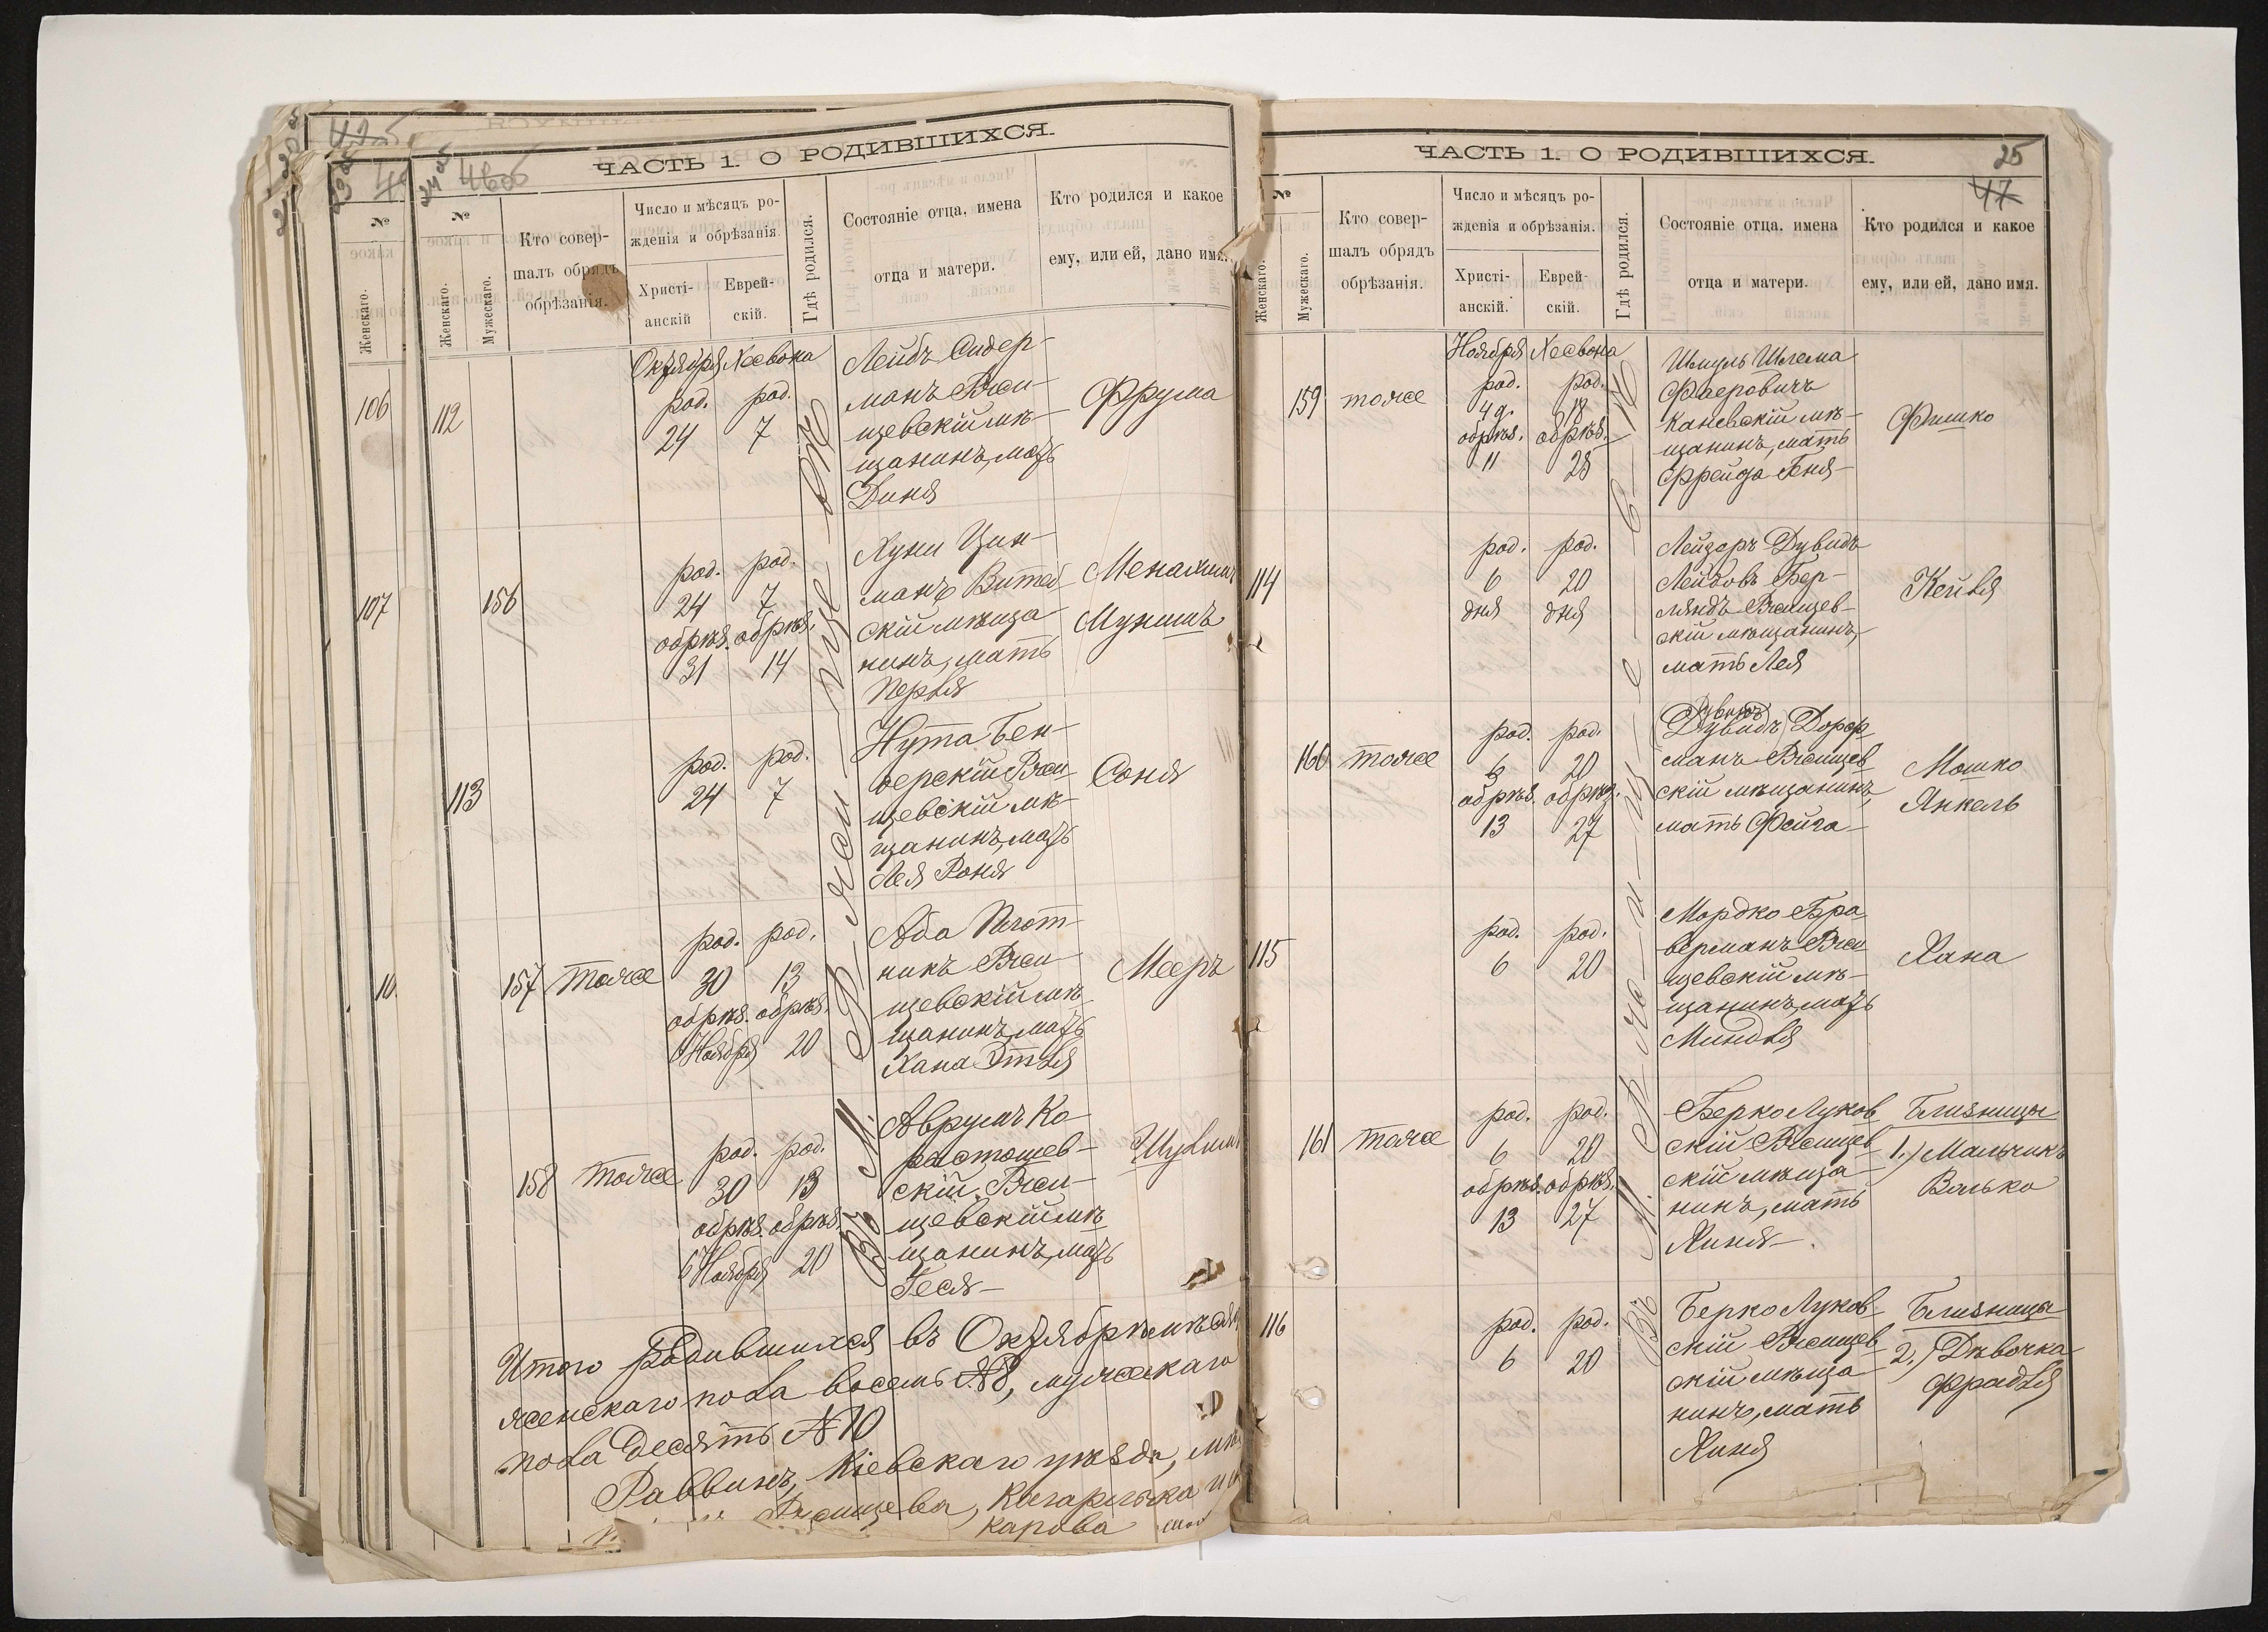 ЧАСТЬ 1. О РОДИВШИХСЯ.
№
Женскаго.
Мужескаго.
Кто совер-
шалъ обрядъ
обрѣзанія.
Число и мѣсяцъ ро-
жденія и обрѣзанія.
Христі-
анскій
Еврей-
скій.
Гдѣ родился.
Состояніе отца, имена
отца и матери.
Кто родился и какое
ему, или ей, дано имя.
№
Женскаго.
106
107
10
112
Октября Хесвона
род. род.
24 7
Лейбъ Сидер-
манъ Ржи-
щевскій мѣ-
щанинъ, мать
Диня
Фрума
156
род. род.
24 7
обрѣз. обрѣз.
31 14
Хуни Цин-
манъ Витеб
скій мѣща
нинъ, мать
Перля
Менахим
Мунишъ
113
род. род.
24 7
Нута Бен-
дерскій Ржи
щевскій мѣ-
щанинъ, мать
Лея Роня
Соня
157 тоже
род. род.
30 13
обрѣз. обрѣз.
6 Ноября 20
Аба Плот-
никъ Ржи-
щевскій мѣ
щанинъ, мать
Хана Этля
Мееръ
158 тоже
род. род.
30 13
обрѣз. обрѣз.
6 Ноября 20
Аврумъ Ко-
растошев-
скій Ржи-
щевскій мѣ
щанинъ, мать
Геся
Шулим
Итого родившихся въ Октябрѣ мѣсяц
женскаго пола восемь №8, мужескаго
пола десять №10
Раввинъ, Кіевскаго уѣзда, мѣ
Ржищева, Кагарлыка и
карова
ЧАСТЬ 1. О РОДИВШИХСЯ.
25
47
№
Женскаго.
Мужескаго.
Кто совер-
шалъ обрядъ
обрѣзанія.
Число и мѣсяцъ ро-
жденія и обрѣзанія.
Христі-
анскій.
Еврей-
скій.
Гдѣ родился.
Состояніе отца, имена
отца и матери.
Кто родился и какое
ему, или ей, дано имя.
159 тоже
Ноября Хесвона
род. род.
4 д. 18
обрѣз. обрѣз.
11 25
Шмуль Шлема
Фаеровичъ
Каневскій мѣ-
щанинъ, мать
Фрейда Беня
Фишко
114
род. род.
6 20
дня дня
Лейзоръ Дувидъ
Лейбовъ Бер-
ляндъ Ржищев-
скій мѣщанинъ,
мать Лея
Кейля
160 тоже
род. род.
6 20
обрѣз. обрѣз.
13 27
Дувидъ
Дувидъ Дорф
манъ Ржищев
скій мѣщанинъ,
мать Фейга
Мошко
Янкель
115
род. род.
6 20
Мордко Бра
верманъ Ржи
щевскій мѣ-
щанинъ, мать
Миндля
Хана
161 тоже
род. род.
6 20
обрѣз. обрѣз.
13 27
Берко Луков
скій Ржищев
скій мѣща
нинъ, мать
Хиня
Близницы
1.) Мальчикъ
Валько
116
род. род.
6 20
Берко Луков
скій Ржищев
скій мѣща
нинъ, мать
Хиня
Близницы
2.) Дѣвочка
Фрадля